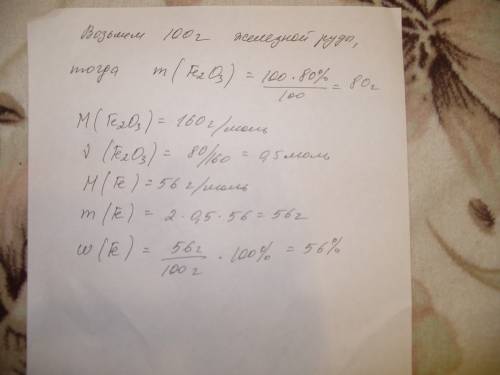 Возьмем 100г железной руды,
тогда m(Fe₂O₃) = 100·80%/100 = 80г
M(Fe₂O₃) = 160г/моль
ν(Fe₂O₃) = 80/160 = 0,5моль
M(Fe) = 56г/моль
m(Fe) = 2·0,5·56 = 56г
w(Fe) = 56г/100г · 100% = 56%